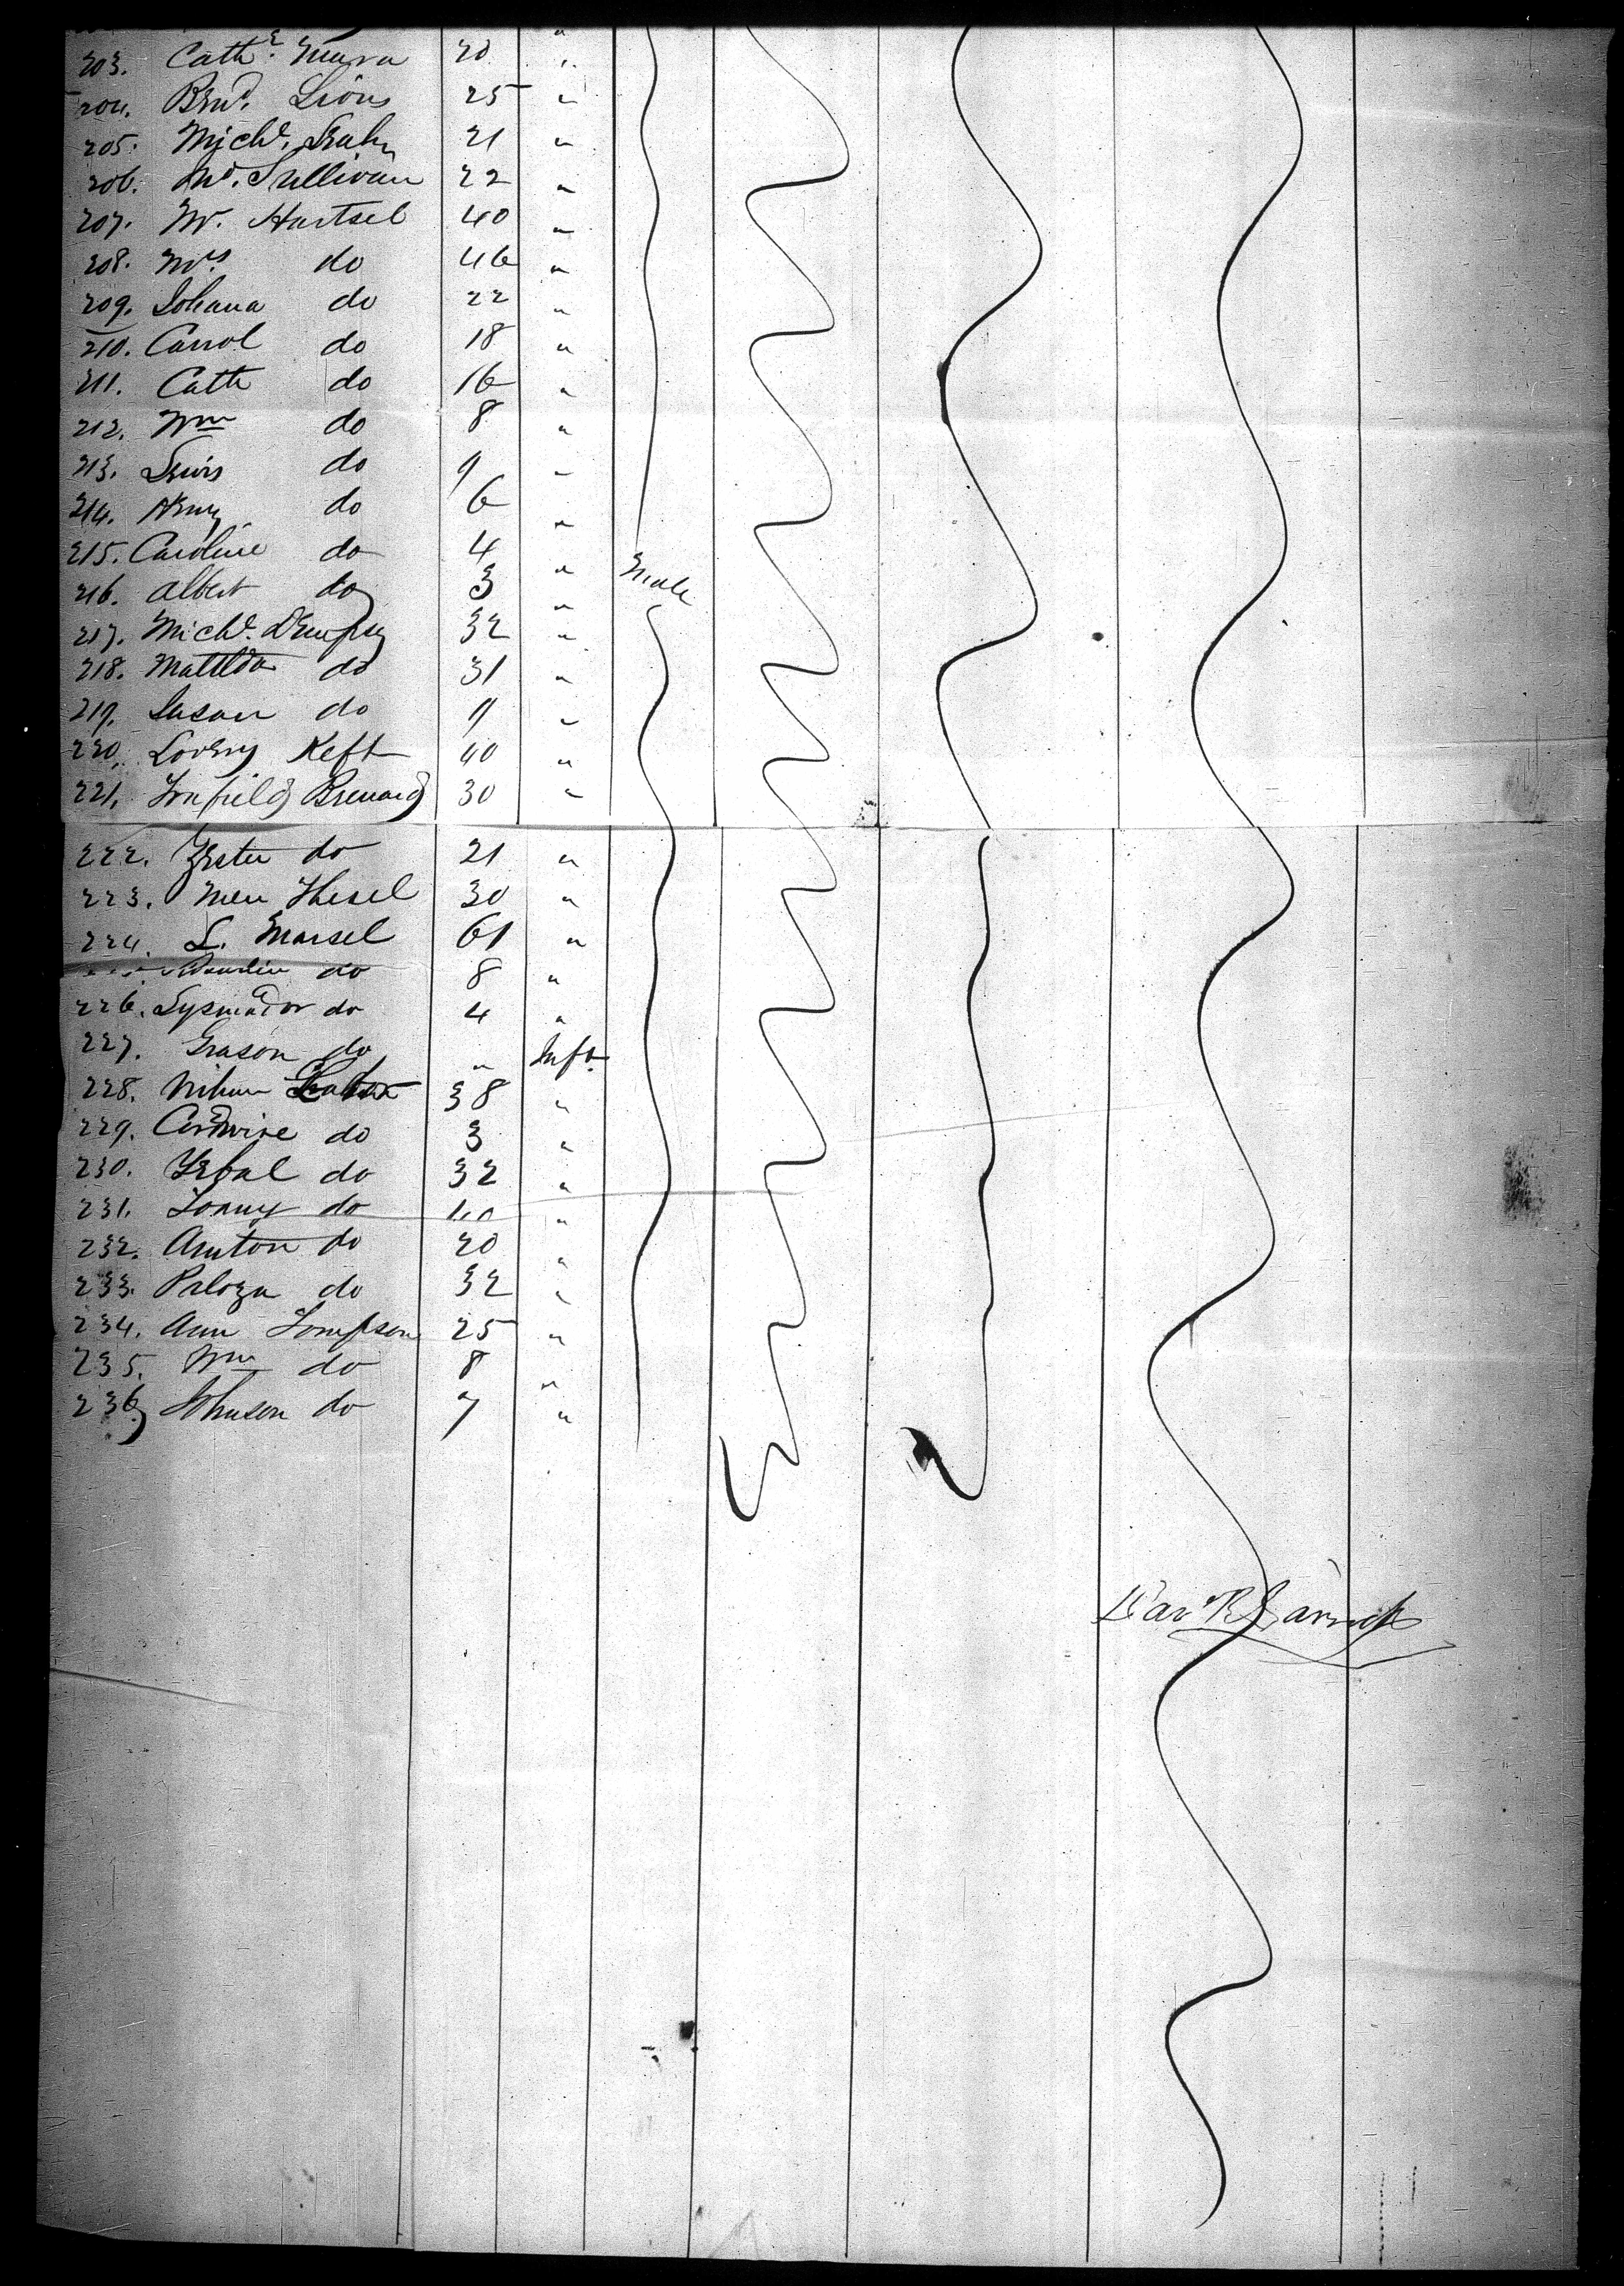 203. Cathe Mara 20 "
204. Brnd. Lions 25 "
205. Michl. Leahy 21 "
206. Sullivan 22 "
207. W. Hartsel 40 "
208. Mrs do 46 "
209. Johana do 22 "
210. Carrol do 18 "
211. Cath do 16 "
212. Wm do 8 "
213. Lewis do 9 "
214. Henry do 6 "
215. Caroline do 4 "
216. Albert do 3 " Male
217. Michl. Dempsey 32 "
218. Matilda do 31 "
219. Susan do 9 "
220. Lovery Keft 40 "
221. Brenard 30 "
222. do 21 "
223. Thesel 30 "
224. L. Marsel 61 "
do 8 "
226. do 4 "
227. Grason do " Inft.
228. 38 "
229. do 3 "
230. do 32 "
231. do "
232. Anton do 20 "
233. Paloza do 32 "
234. Ann Tompson 25 "
235. Wm do 8 "
236. Johnson do 7 "